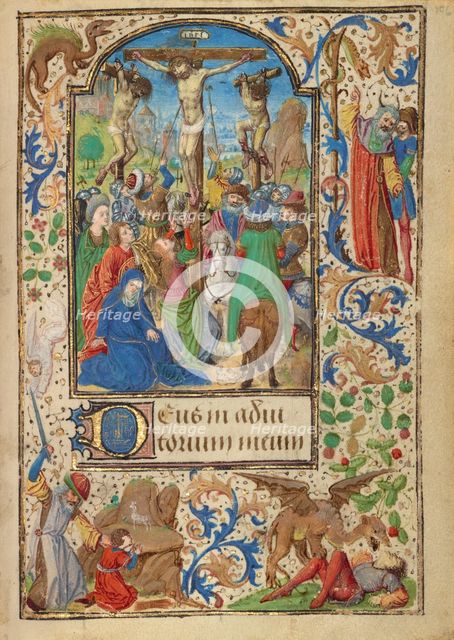 Deus in adiu
torium meum
Heritage
Heritage
Heritage
Heritage
Heritage
Heritage
Heritage